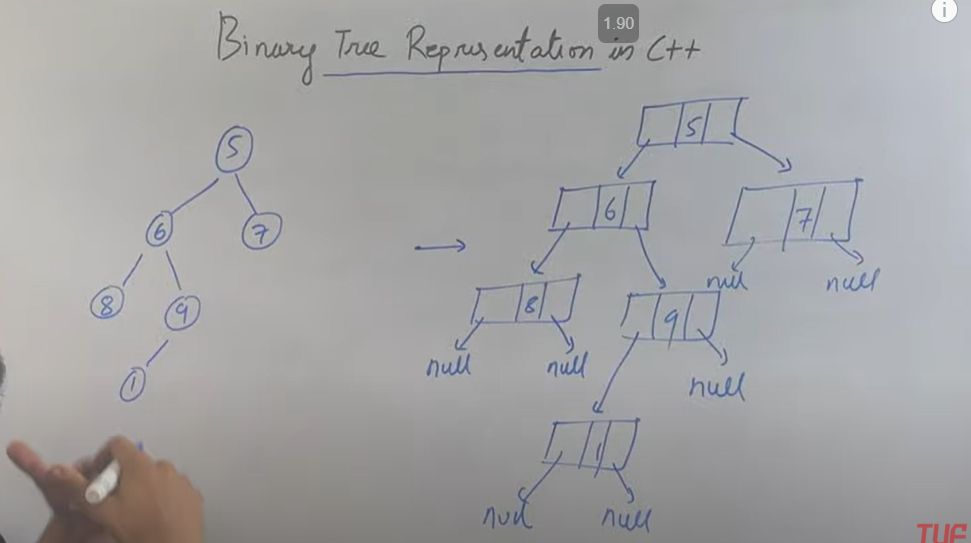 1.90
i
Binary Tree Representation in C++
5
6
7
8
9
1
5
6
7
null
null
8
9
null
null
null
1
null
null
TUF